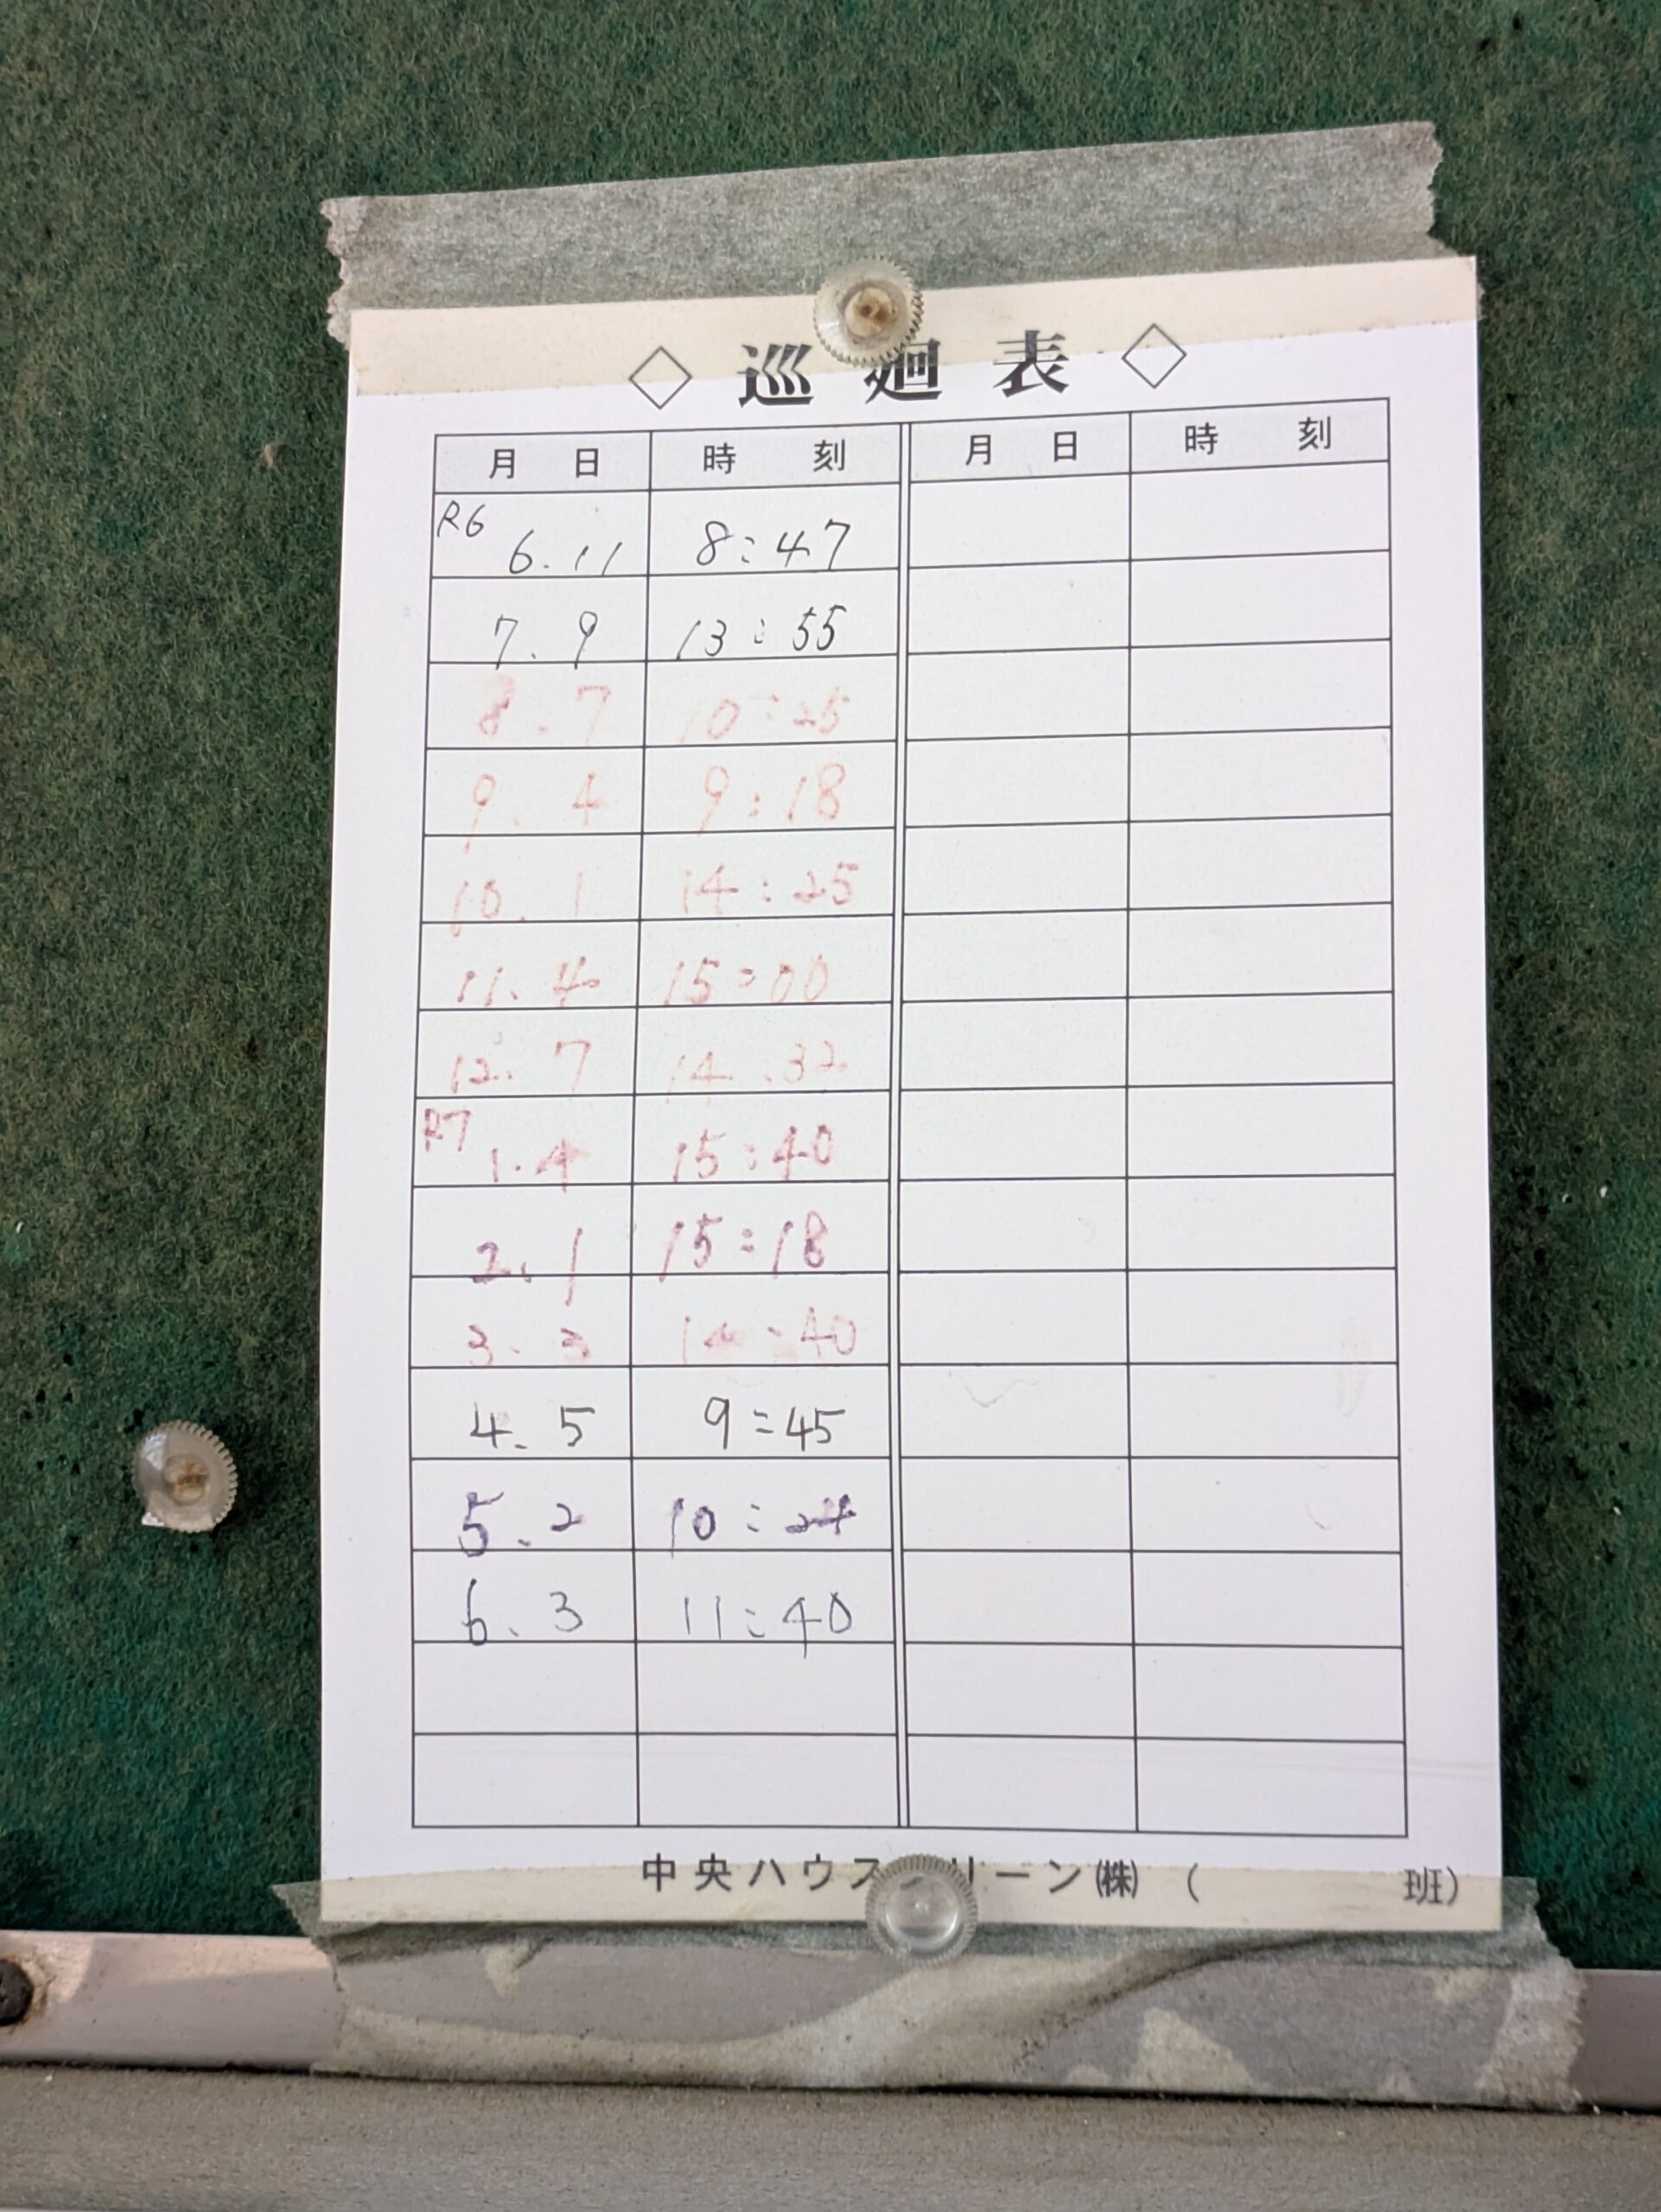 ◇ 巡廻表 ◇
月 日 時 刻 月 日 時 刻
R6 6.11 8:47
7.9 13:55
8.7 10:25
9.4 9:18
10.1 14:25
11.4 15:00
12.7 14:32
R7 1.4 15:40
2.1 15:18
3.3 14:40
4.5 9:45
5.2 10:24
6.3 11:40
中央ハウスクリーン㈱ ( 班)